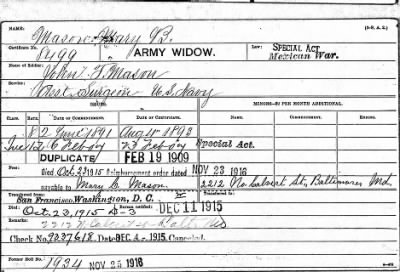 NAME: (3-R. A. 2.)
Mason Mary B.
Certificate No. Law: SPECIAL ACT
1499 ARMY WIDOW. Mexican War.
Name of Soldier:
John T. Mason
Service:
Asst. Surgeon U.S. Navy
MINORS—$2 PER MONTH ADDITIONAL.
CLASS. RATE. DATE OF COMMENCEMENT. DATE OF CERTIFICATE. DATE OF COMMENCEMENT.
8 2 June 1891 Aug 4 1893
12 6 Feb 09 23 Feb 09 Special Act.
DUPLICATE FEB 19 1909
Died Oct. 23 1915 Reimbursement order dated NOV 23 1916
payable to Mary C. Mason. 2212 No. Calvert St., Baltimore Md.
Transferred from
San Francisco, Washington, D. C.
Died Bureau notified: DEC 11 1915
Oct. 23, 1915
2212 N. Calvert Balto Md
Check No. 9237618 Dated DEC. 4 - 1915 Canceled.
Former Roll No.
1934 NOV 25 1916